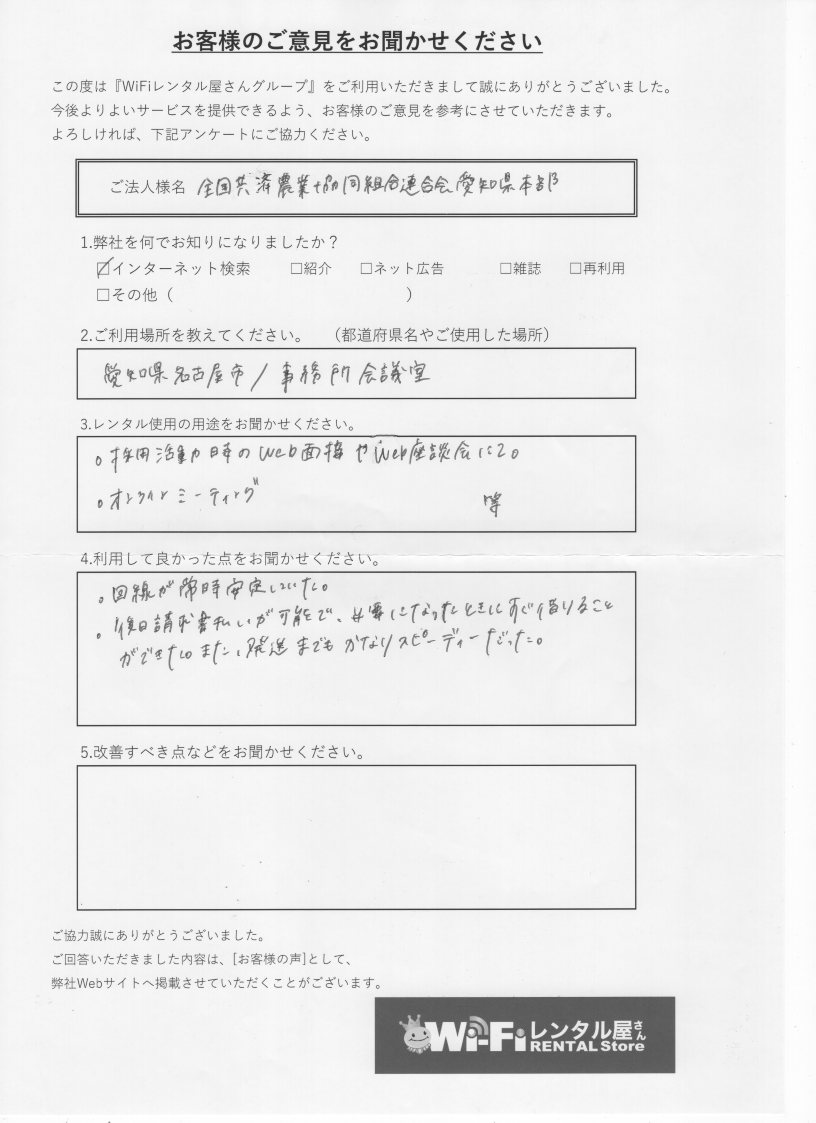 お客様のご意見をお聞かせください
この度は『WiFiレンタル屋さんグループ』をご利用いただきまして誠にありがとうございました。
今後よりよいサービスを提供できるよう、お客様のご意見を参考にさせていただきます。
よろしければ、下記アンケートにご協力ください。
ご法人様名 全国共済農業協同組合連合会愛知県本部
1.弊社を何でお知りになりましたか？
☑インターネット検索 □紹介 □ネット広告 □雑誌 □再利用
□その他（ ）
2.ご利用場所を教えてください。 （都道府県名やご使用した場所）
愛知県名古屋市/事務所会議室
3.レンタル使用の用途をお聞かせください。
。採用活動時のWeb面接やWeb座談会にて。
。オンラインミーティング 等
4.利用して良かった点をお聞かせください。
。回線が常時安定していた。
。後日請求書払いが可能で、必要になったときにすぐ借りること
ができた。また、発送までもかなりスピーディーだった。
5.改善すべき点などをお聞かせください。
ご協力誠にありがとうございました。
ご回答いただきました内容は、[お客様の声]として、
弊社Webサイトへ掲載させていただくことがございます。
Wi-Fiレンタル屋さん
RENTAL Store